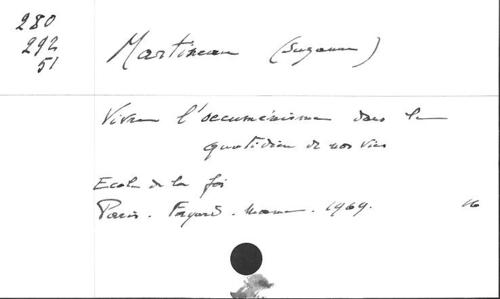 280
292
51
Martineau (Suzanne)
Vivre l'oecuménisme dans le
quotidien de nos vies
Ecole de la foi
Paris. Fayard. Mame. 1969.
16